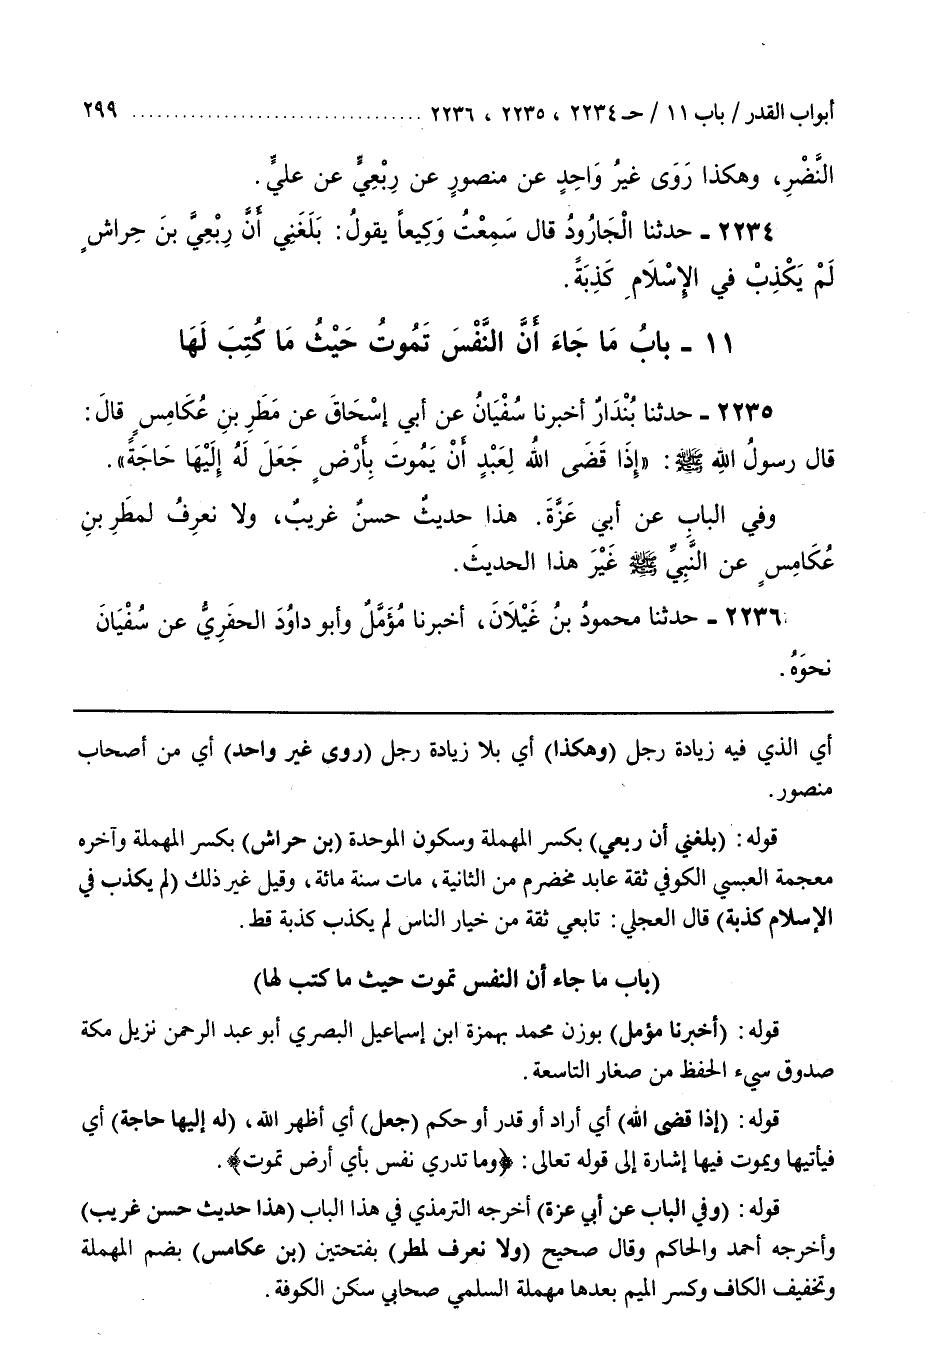 أبواب القدر / باب ١١ / حـ ٢٢٣٤ ، ٢٢٣٥ ، ٢٢٣٦ .................................. ٢٩٩
النَّضْرِ، وهكذا رَوَى غيرُ وَاحِدٍ عن منصورٍ عن رِبْعِيٍّ عن عليٍّ.
٢٢٣٤ ـ حدثنا الْجَارُودُ قال سَمِعْتُ وَكِيعاً يقولُ: بَلَغَنِي أَنَّ رِبْعِيَّ بنَ حِراشٍ
لَمْ يَكْذِبْ في الإِسْلَامِ كَذِبَةً.
١١ ـ بابُ مَا جَاءَ أَنَّ النَّفْسَ تَمُوتُ حَيْثُ مَا كُتِبَ لَهَا
٢٢٣٥ ـ حدثنا بُنْدَارٌ أخبرنا سُفْيَانُ عن أبي إِسْحَاقَ عن مَطَرِ بنِ عُكَامِسٍ قالَ:
قال رسولُ اللهِ ﷺ: «إِذَا قَضَى اللهُ لِعَبْدٍ أَنْ يَمُوتَ بِأَرْضٍ جَعَلَ لَهُ إِلَيْهَا حَاجَةً».
وفي البابِ عن أبي عَزَّةَ. هذا حديثٌ حسنٌ غريبٌ، ولا نعرِفُ لمطَرِ بنِ
عُكَامِسٍ عن النَّبِيِّ ﷺ غَيْرَ هذا الحديثَ.
٢٢٣٦ ـ حدثنا محمودُ بنُ غَيْلَانَ، أخبرنا مُؤَمَّلٌ وأبو داوُدَ الحفَرِيُّ عن سُفْيَانَ
نحوَهُ.
أي الذي فيه زيادة رجل (وهكذا) أي بلا زيادة رجل (روى غير واحد) أي من أصحاب
منصور.
قوله: (بلغني أن ربعي) بكسر المهملة وسكون الموحدة (بن حراش) بكسر المهملة وآخره
معجمة العبسي الكوفي ثقة عابد مخضرم من الثانية، مات سنة مائة، وقيل غير ذلك (لم يكذب في
الإسلام كذبة) قال العجلي: تابعي ثقة من خيار الناس لم يكذب كذبة قط.
(باب ما جاء أن النفس تموت حيث ما كتب لها)
قوله: (أخبرنا مؤمل) بوزن محمد بهمزة ابن إسماعيل البصري أبو عبد الرحمن نزيل مكة
صدوق سيء الحفظ من صغار التاسعة.
قوله: (إذا قضى الله) أي أراد أو قدر أو حكم (جعل) أي أظهر الله، (له إليها حاجة) أي
فيأتيها ويموت فيها إشارة إلى قوله تعالى: ﴿وما تدري نفس بأي أرض تموت﴾.
قوله: (وفي الباب عن أبي عزة) أخرجه الترمذي في هذا الباب (هذا حديث حسن غريب)
وأخرجه أحمد والحاكم وقال صحيح (ولا نعرف لمطر) بفتحتين (بن عكامس) بضم المهملة
وتخفيف الكاف وكسر الميم بعدها مهملة السلمي صحابي سكن الكوفة.